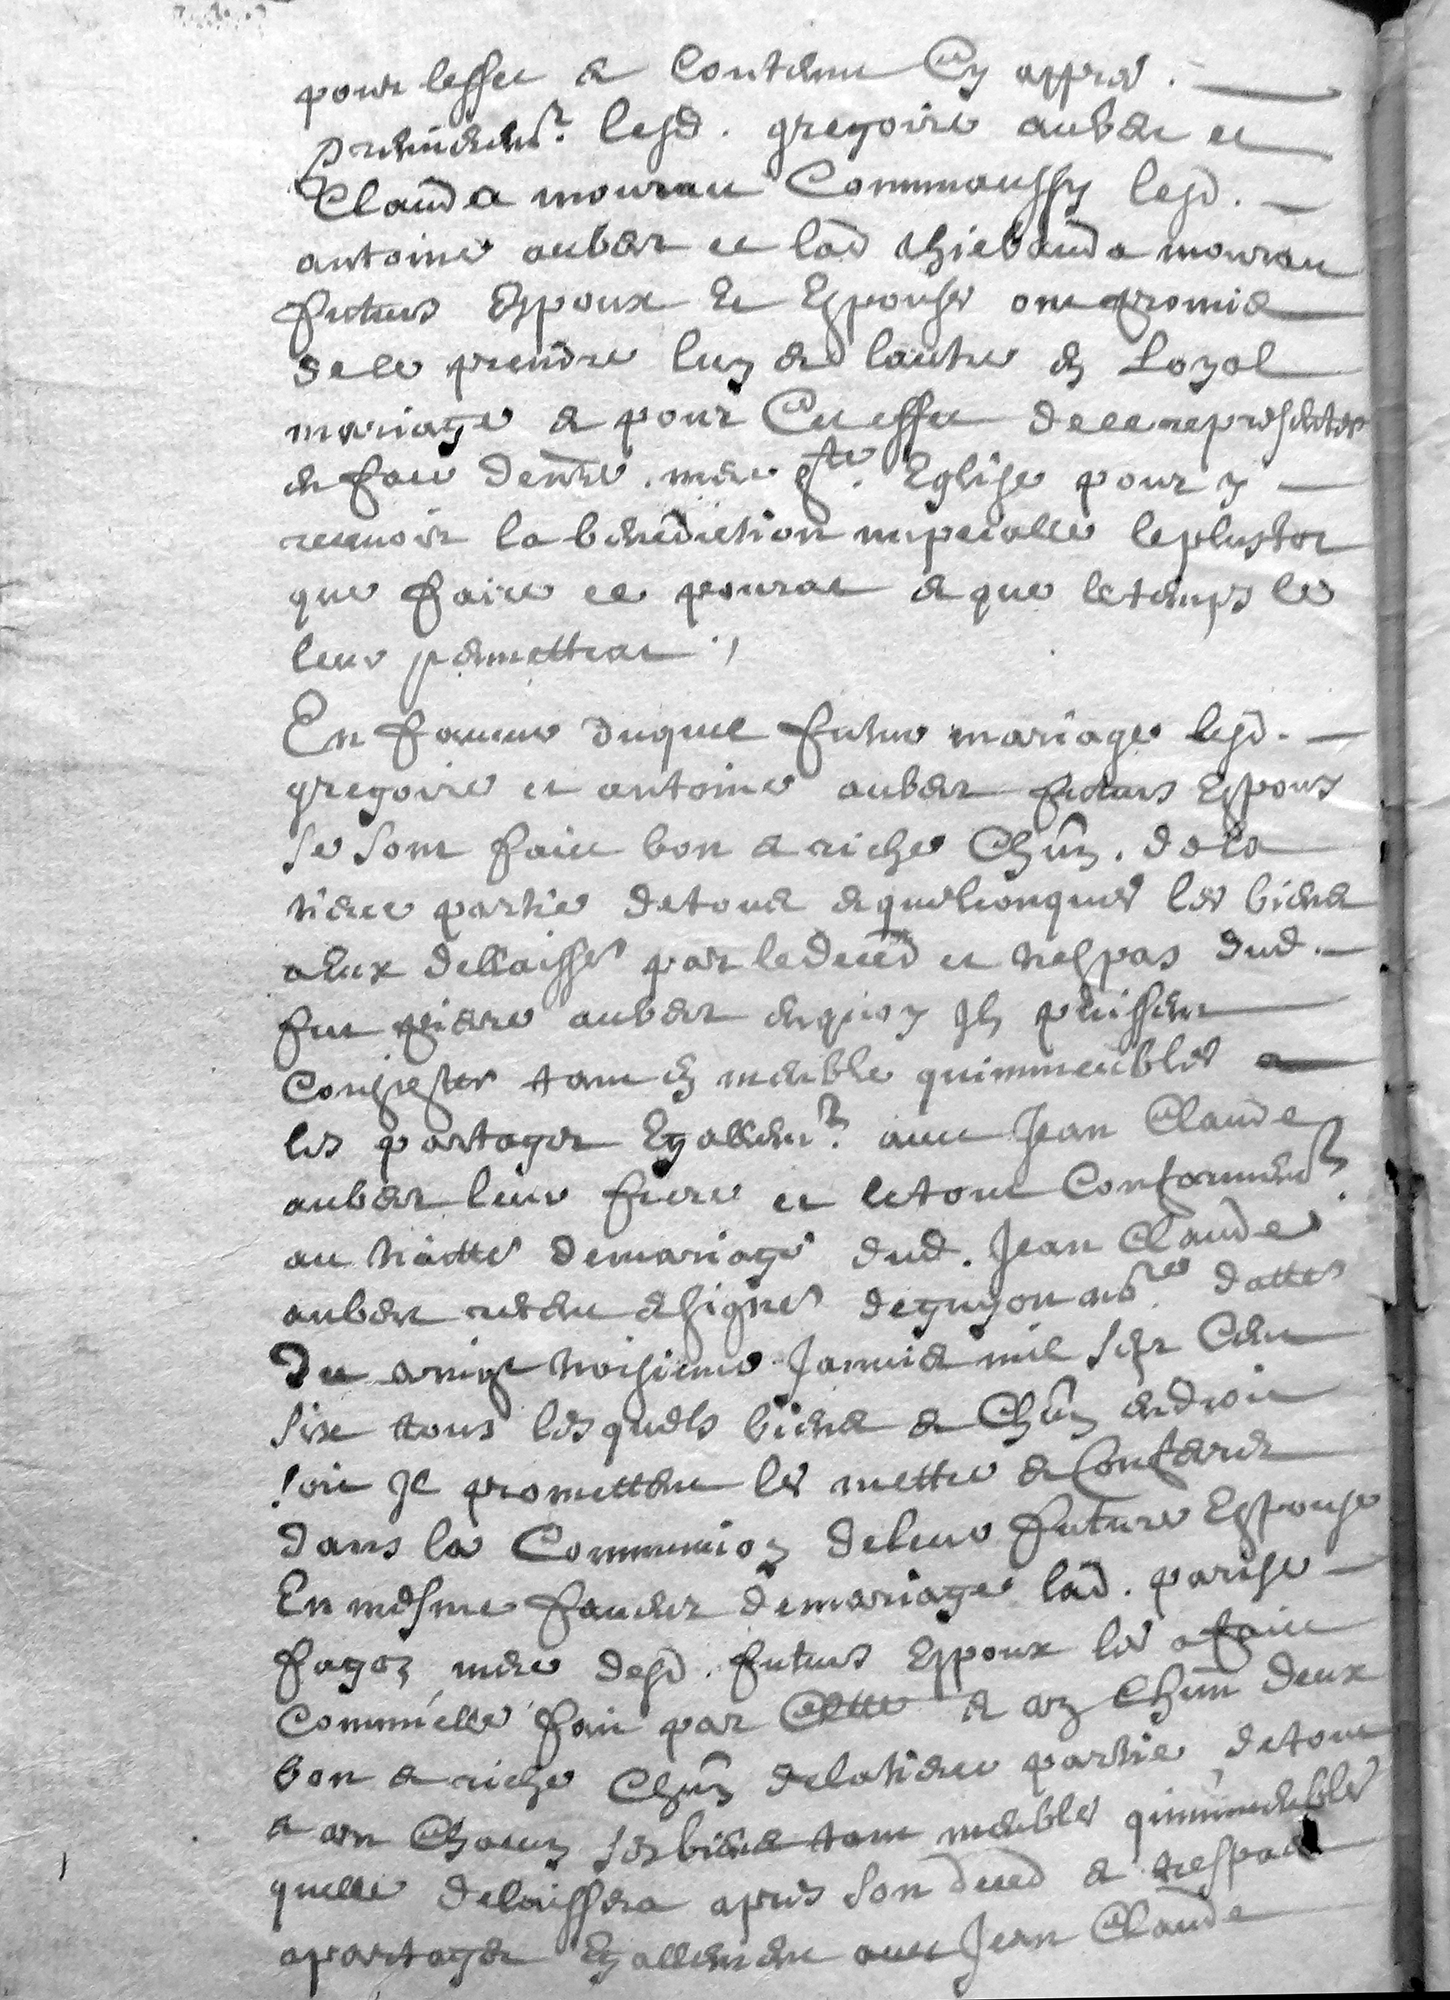 pour leffec & Contenu Cy appres .
premierem.t lesd . gregoire auber et
Clauda mourau Commaussy lesd .
antoine auber et lad thiebauda mourau
futurs Espoux et Espouse ont promis
de se prendre lun & lautre en Loyal
mariage & pour Cet effec de se representer
en face de nre . mere s.te Eglise pour y
recevoir la benediction nupcialle le plustot
que faire se pourat & que le temps le
leur permettrat
En faveur duquel futur mariage lesd .
gregoire et antoine auber futurs Espoux
se sont faict bon & riche Chun . de la
tierce partie de tous & quelconques les biens
a Eux dellaisses par le deced et trespas dud .
feu piere auber en quoy Ils puissent
Consister tant en meuble quimmeubles a
les partager Egallem.t avec Jean Claude
auber leur frere et le tout Conformem.t
au traitté de mariage dud . Jean Claude
auber receu & signé de guyon no.re datté
Du vingt troisieme Janvier mil sept Cent
six tous lesquels biens & Chun en droit
soit Il promettent les mettre & Conferer
dans la Communion de leur future Espouse
En mesme faveur de mariage lad . parise
fagoz mere desd . futurs Espoux les a faict
Comm elle fait par Cette & un Chun deux
bon & riche Chun de la tierce partie de tout
& un Chacun ses biens tant meubles quimmeubles
quelle delaissera apres son deced & trespas
a partager Egallement avec Jean Claude